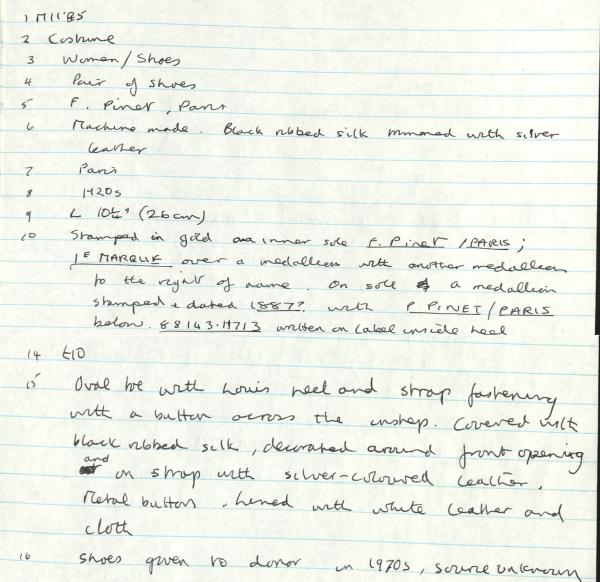 1 M11'85
2 Costume
3 Women/Shoes
4 Pair of shoes
5 F. Pinet, Paris
6 Machine made. Black ribbed silk trimmed with silver
leather
7 Paris
8 1920s
9 L 10¼" (26cm)
10 Stamped in gold on inner sole F. Pinet /PARIS;
1E MARQUE over a medallion with another medallion
to the right of name. On sole a medallion
stamped + dated 1887? with P PINET/PARIS
below. 88143.H713 written on label inside heel
14 £10
15 Oval toe with Louis heel and strap fastening
with a button across the instep. Covered with
black ribbed silk, decorated around front opening
and on strap with silver-coloured leather.
Metal button. Lined with white leather and
cloth
16 Shoes given to donor in 1970s, source unknown